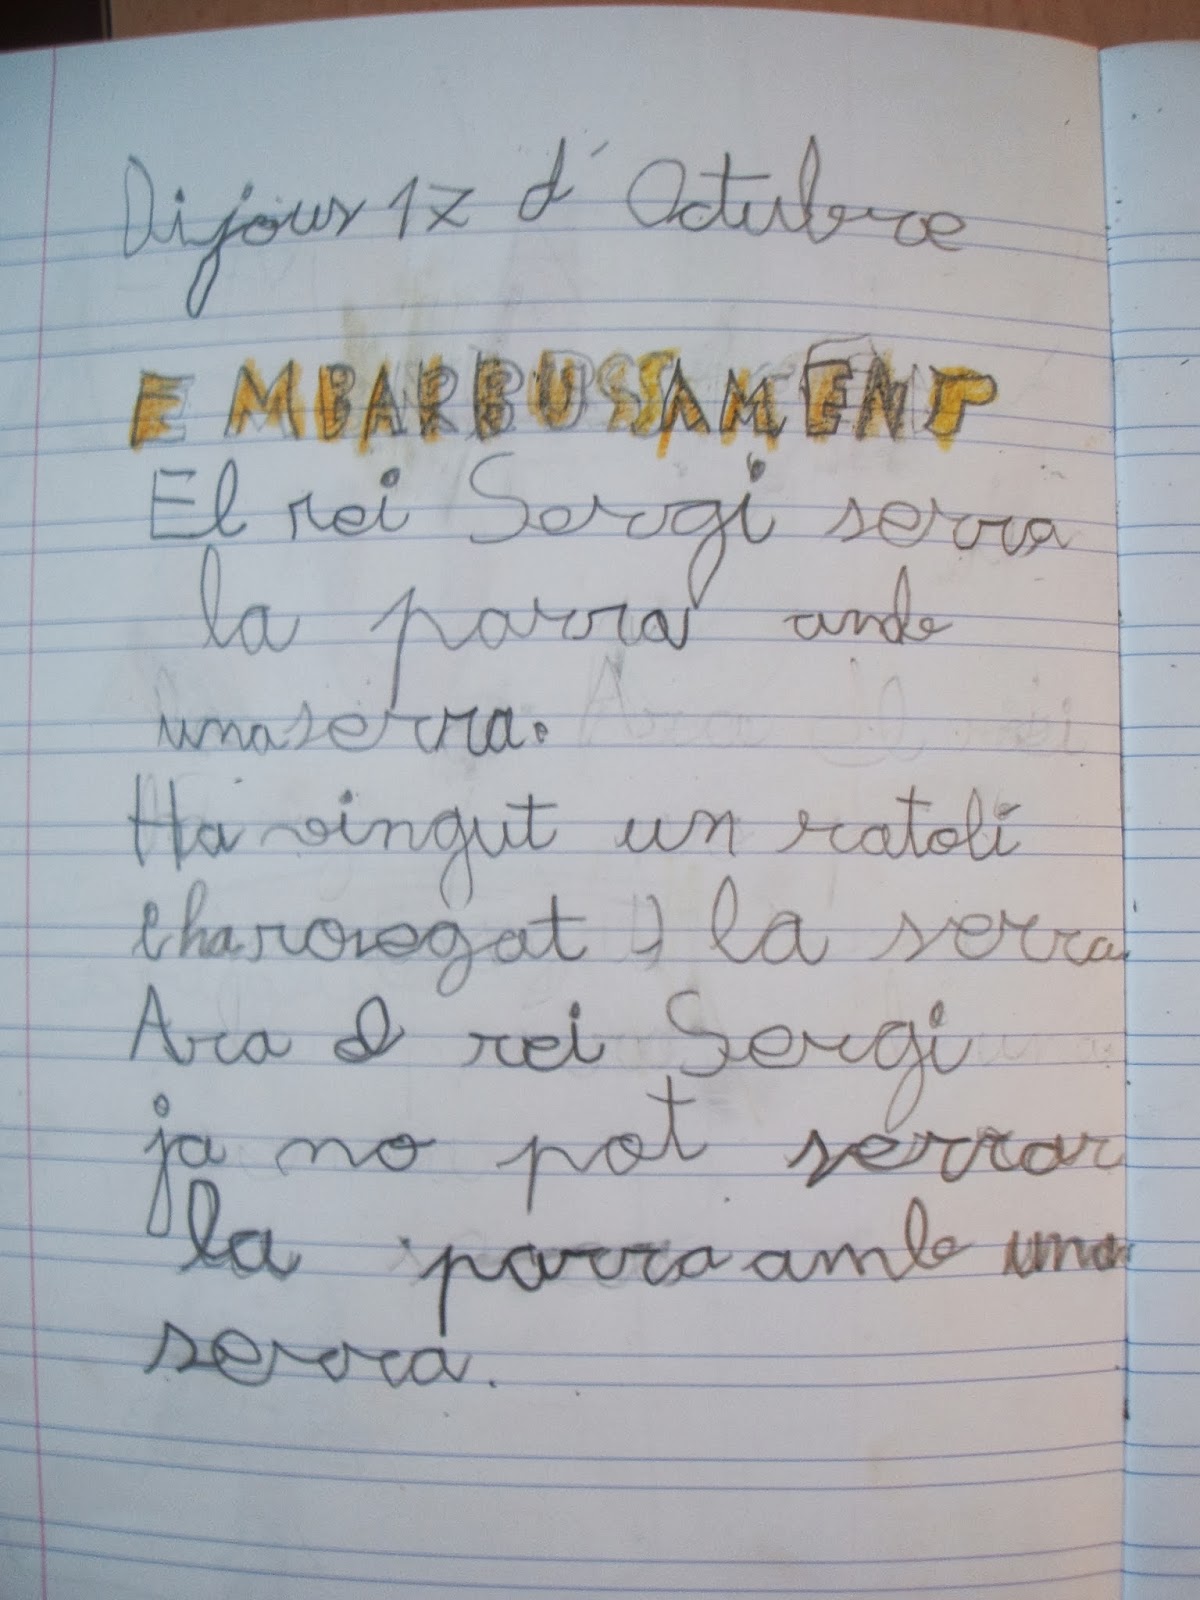 Dijous 17 d'Octubre
EMBARBUSSAMENT
El rei Sergi serra
la parra amb
una serra.
Ha vingut un ratolí
i ha rosegat la serra.
Ara el rei Sergi
ja no pot serrar
la parra amb una
serra.